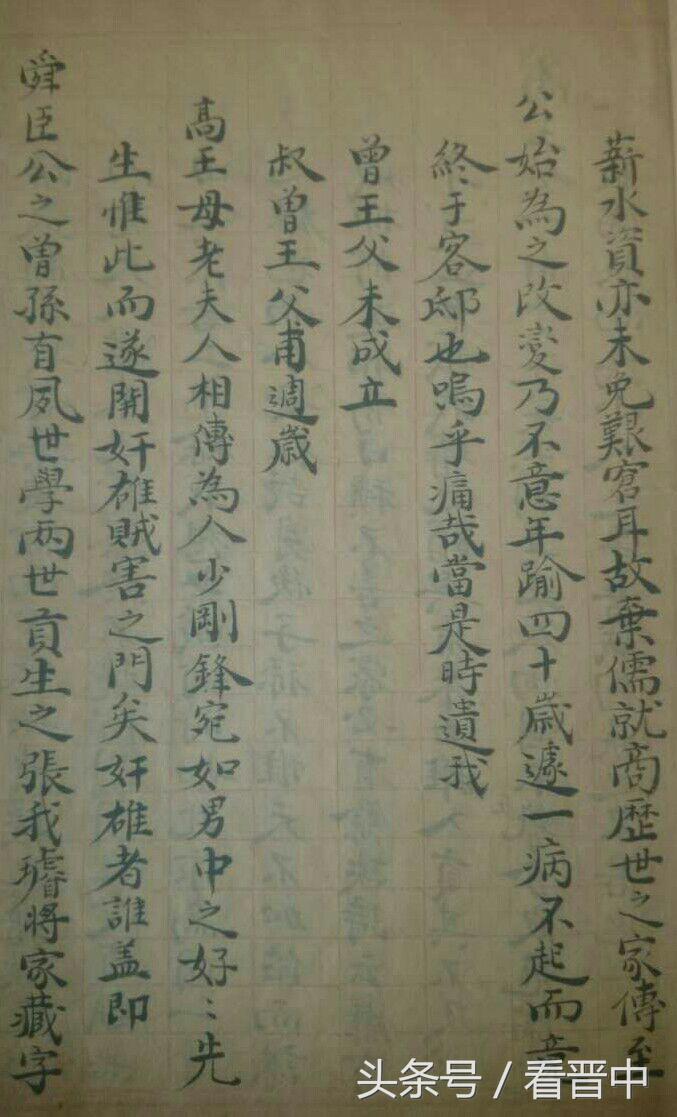 薪水資亦未免艱窘耳故棄儒就商歷世之家傳至
公始為之改變乃不意年踰四十歲遽一病不起而竟
終于客邸也嗚乎痛哉當是時遺我
曾王父未成立
叔曾王父甫週歲
高王母老夫人相傳為人少剛鋒宛如男中之好〻先
生惟此而遂開奸雄賊害之門矣奸雄者誰盖即
舜臣公之曾孫百夙世學两世貢生之張我璿將家藏字
头条号 / 看晋中